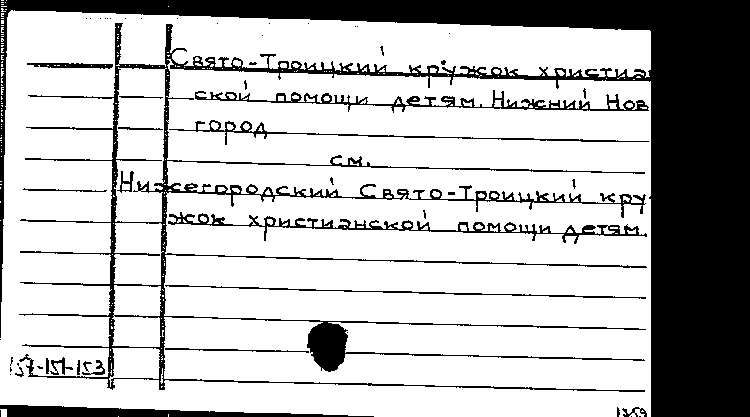 Свято-Троицкий кружок христиан
ской помощи детям. Нижний Нов
город
см.
Нижегородский Свято-Троицкий кру
жок христианской помощи детям.
157-151-153
1759